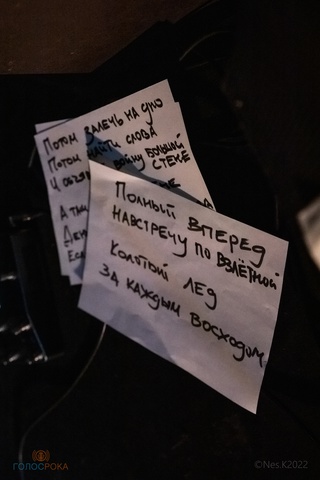 Потом залечь на дно
Потом найти слова
И объя войну большой
стене
А тн
Ден
Есл
Полный вперед
навстречу по взлётной
Колотой лед
за каждым восходом
ГОЛОСРОКА
©Nes.K2022